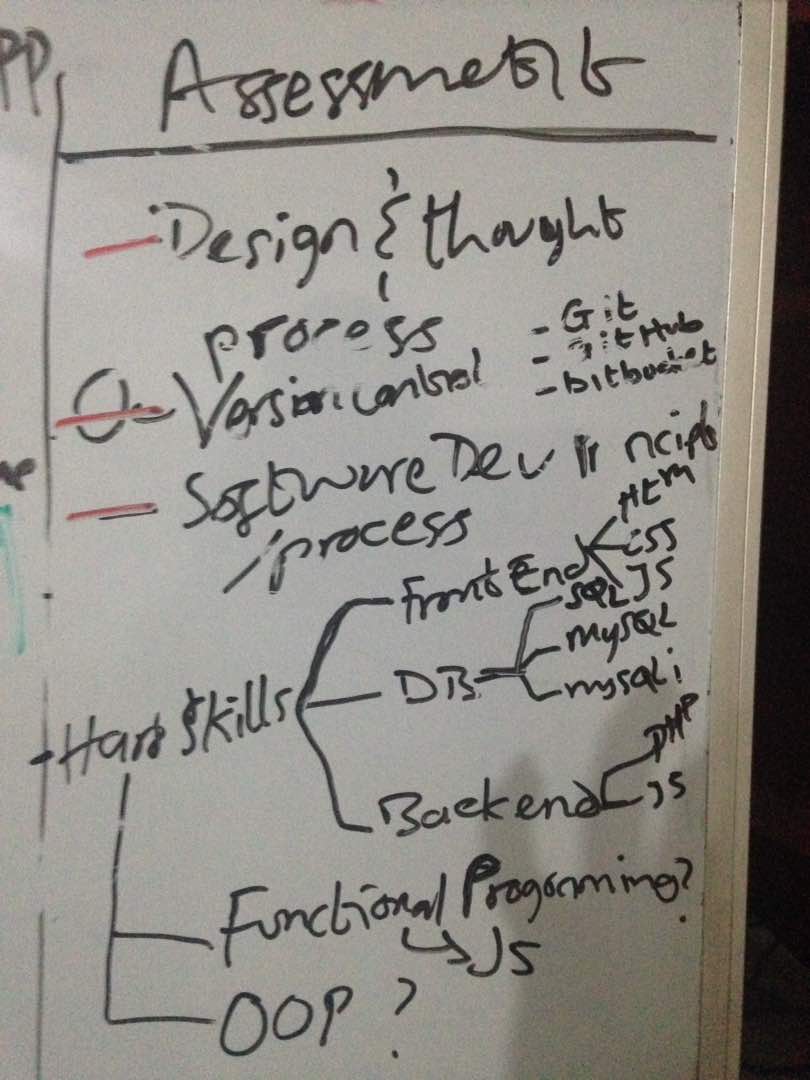 PP
Assessment
- Design & thought
process
- Version control
- Git
- GitHub
- bitbucket
- Software Dev Principle
/process
- Hard skills
Front End
HTM
CSS
JS
DB
SQL
MySQL
mysqli
Backend
PHP
JS
Functional Progomming?
JS
OOP ?